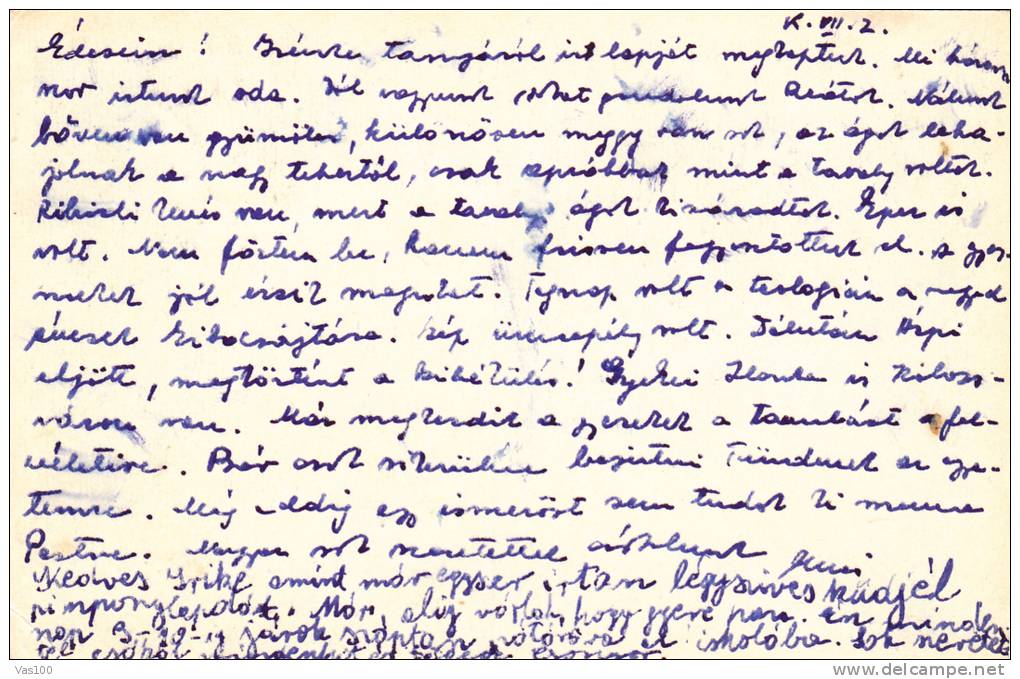 K. VII. 2.
Édeseim! tanyáról írt lapját megkaptuk. Mi három-
szor írtunk oda. Jól vagyunk, sokat gondolunk Reátok. Nálunk
bőven van gyümölcs, különösen meggy van sok, az ágak leha-
jolnak a nagy tehertől, csak apróbbak mint a tavaly voltak.
Ribizli kevés van, mert a tavaly ágak kiszáradtak. Eper is
volt. Nem főztem be, hanem frissen fogyasztottuk el. A gyer-
mekek jól érzik magukat. Tegnap volt a teológián a negyed
évesek kibocsájtása. Szép ünnepély volt. Délután
eljött, megtörtént a kibékülés! Ilonka is Kolozs-
váron van. Már megkezdik a gyerekek a tanulást a fel-
vételire. Bár csak sikerülne bejutni Tündének az egye-
temre. Még eddig egy ismerőst sem tudok ki menne
Pestre. Nagyon sok szeretettel csókolunk
Kedves amint már egyszer írtam légyszíves küldjél
pimponglapdát. Már alig várlak, hogy gyere haza. Én minden
nap járok iskolába. Sok
Vas100
delcampe.net